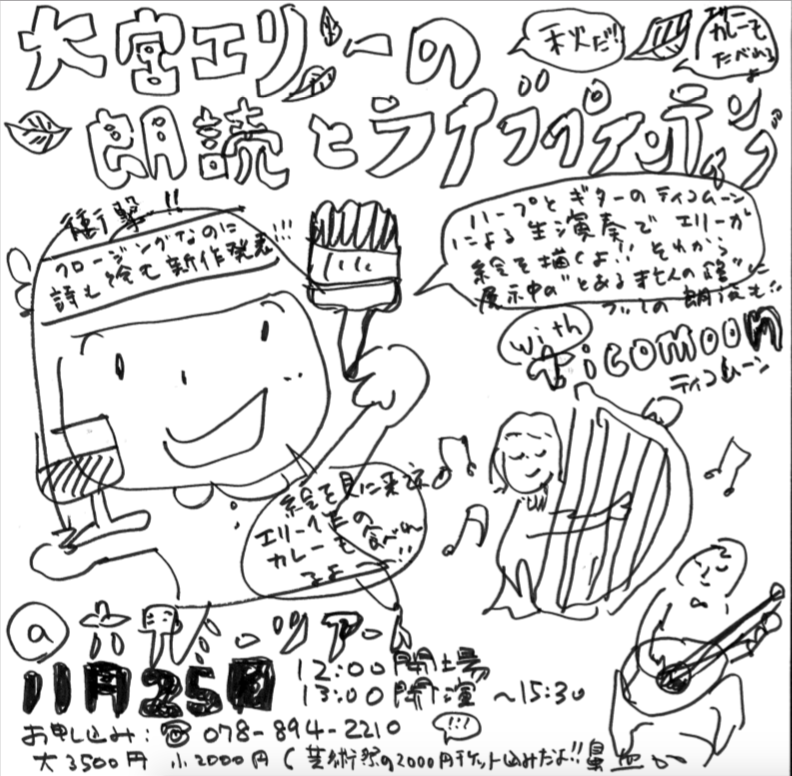 大宮エリーの
秋だ!!
カレーも
たべれる
よ
朗読とライブペインティング
衝撃!!
クロージングなのに
詩も絵も新作発表!!!
ハープとギターのティコムーン
による生演奏で エリーが
絵を描くよ!! それから
展示中の"とある
の朗読も!!
with
ticomoon
ティコムーン
絵を見に来て
エリー
カレーも食べれ
るよー!!
@六甲ミーツアート
11月25日
12:00 開場
13:00 開演 〜15:30
お申し込み:☎078-894-2210
!!!
大3500円 小2000円 (芸術祭の2000円チケット込みだよ!!